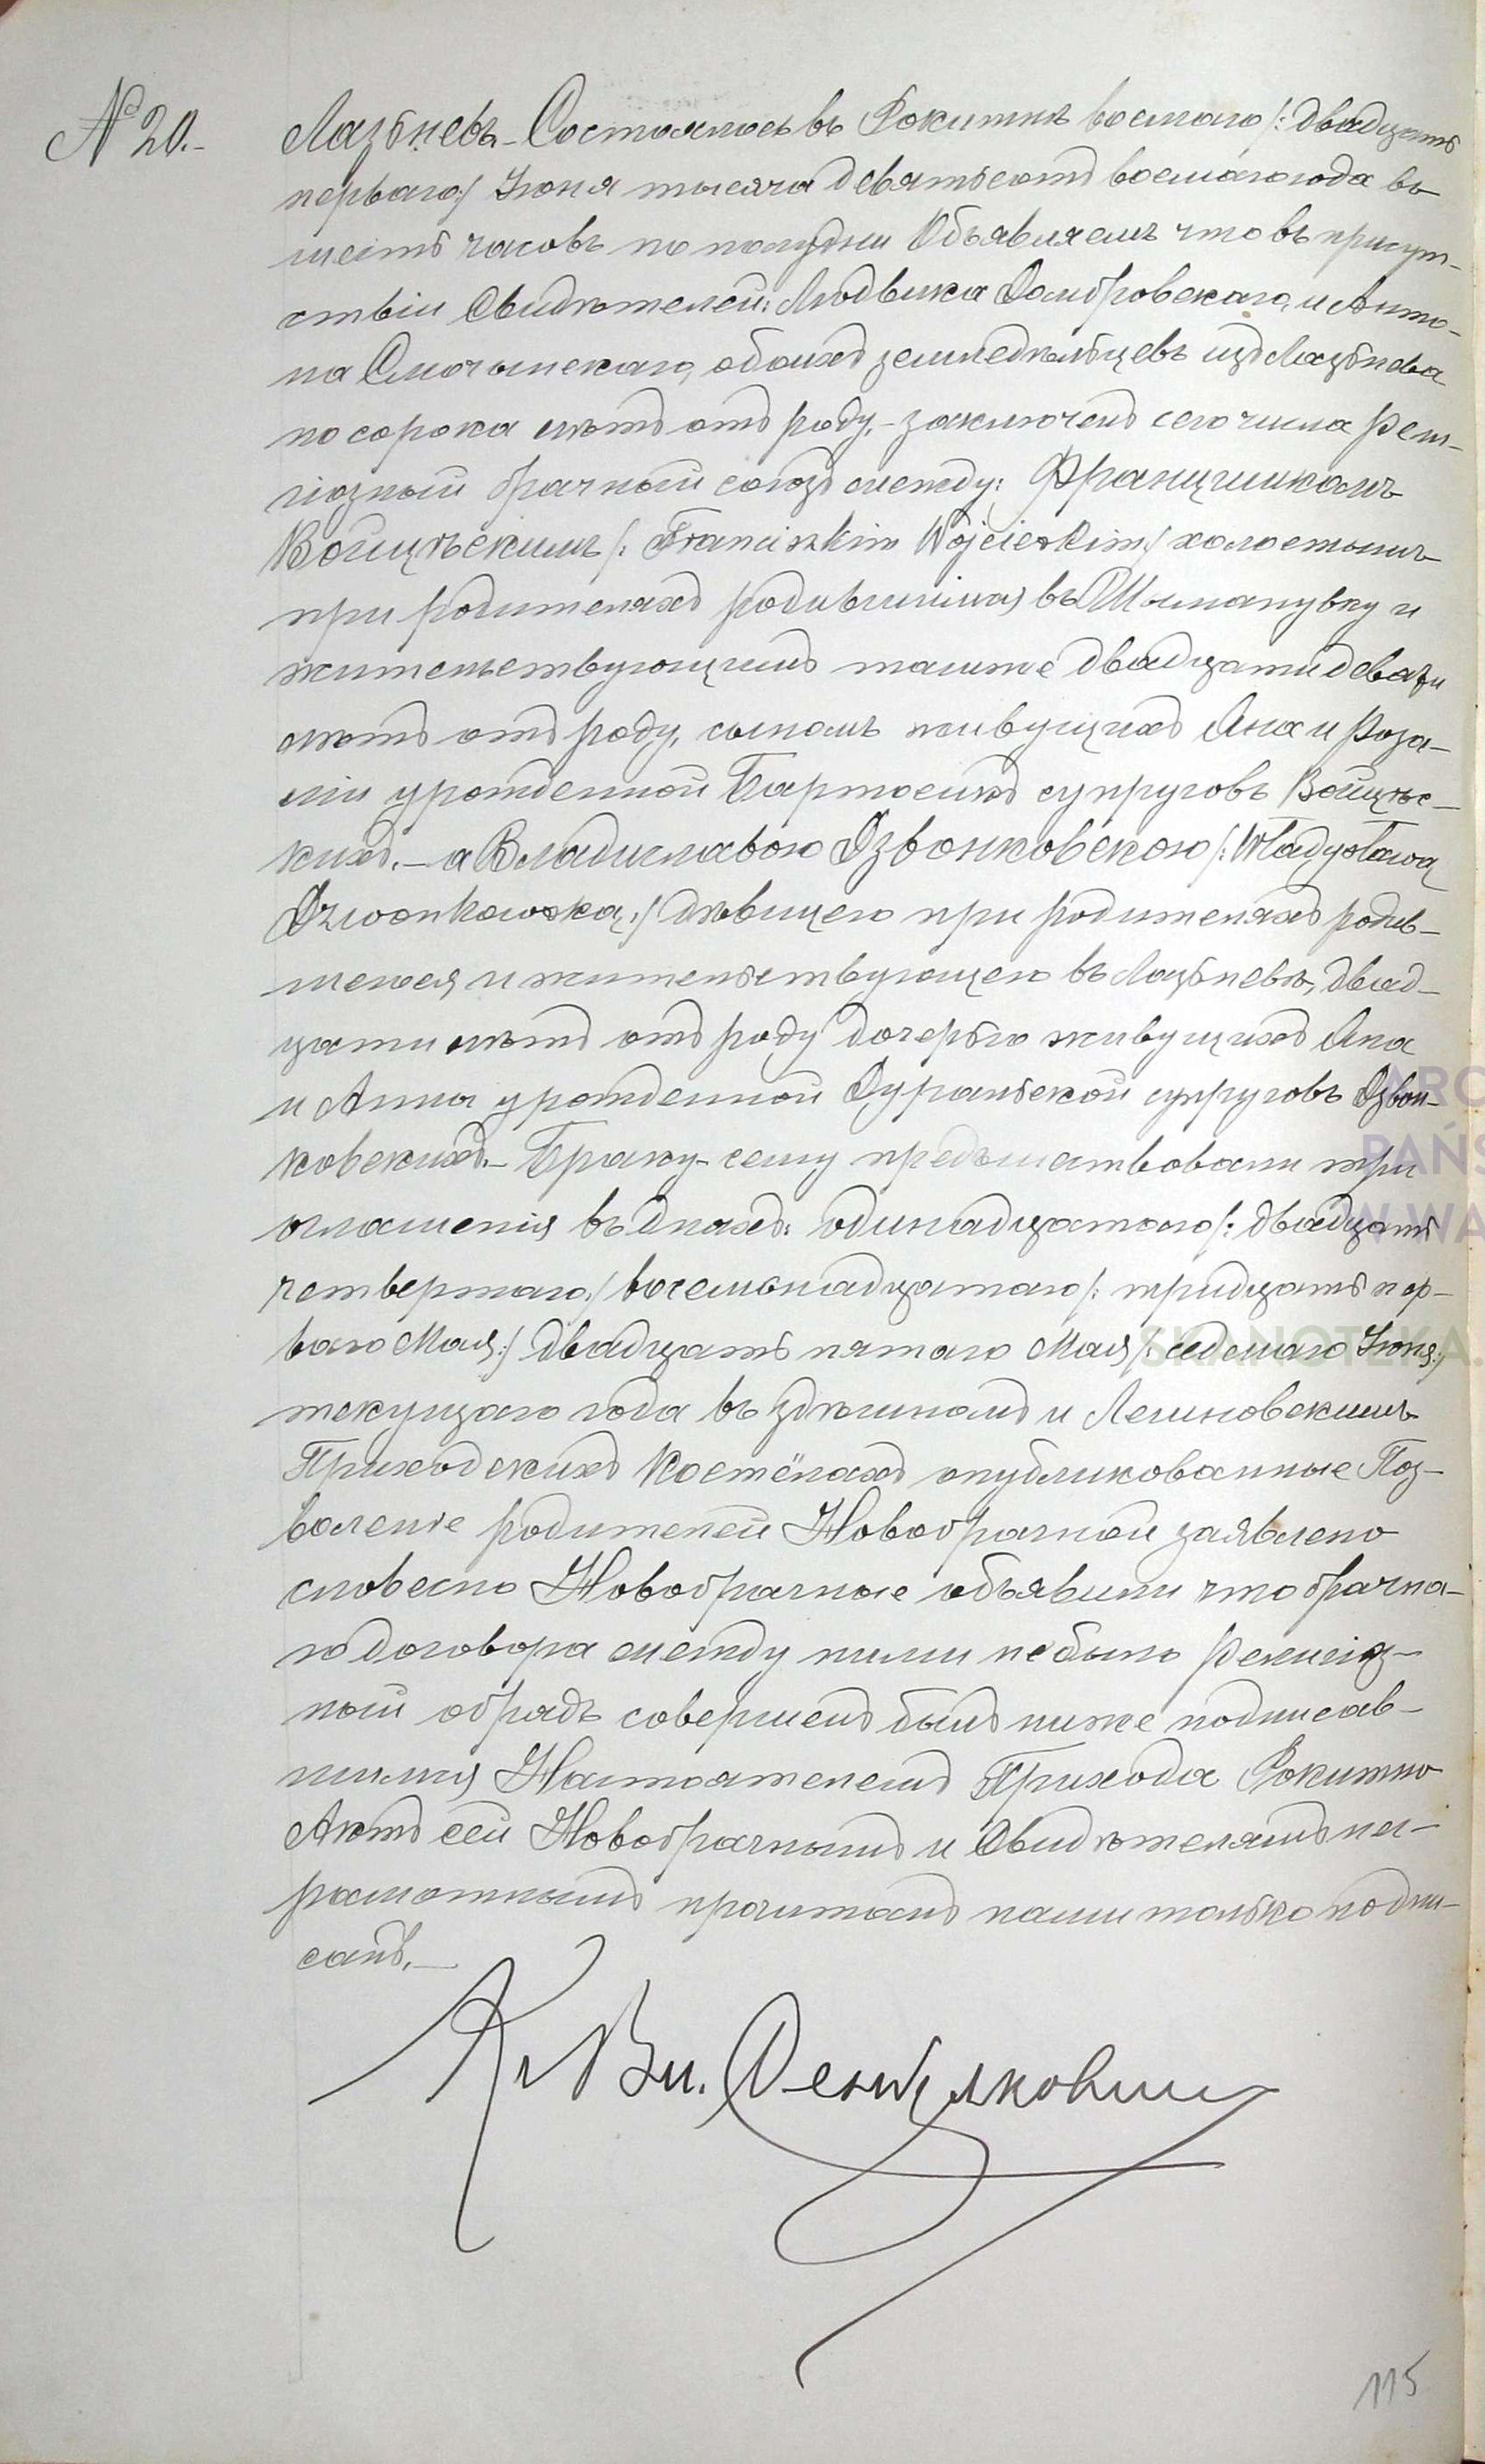 № 20.-
Лазьневъ - Состоялось въ Рокитнѣ восьмаго /: двадцать
перваго:/ Іюня тысяча девятьсотъ восьмаго года въ
шесть часовъ по полудни Объявляемъ что въ присут-
ствіи Свидѣтелей: Людвика Домбровскаго, и Анто-
на Смочынскаго, обоихъ земледѣльцевъ изъ Лазьнева
по сорока лѣтъ отъ роду, - заключенъ сего числа рели-
гіозный брачный союзъ между: Францишкомъ
Войцѣскимъ /: Franciszkim Wójcieskim:/ холостымъ
при родителяхъ родившимся въ Шымануву и
жительствующимъ такжѐ двадцати девяти
лѣтъ отъ роду, сыномъ живущихъ Яна и Роза-
ліи урожденной Бартосикъ супруговъ Войцѣс-
кихъ. - а Владиславою Дзвонковскою /: Władysławą
Dzwonkowską,:/ дѣвицею при родителяхъ родив-
шеюся и жительствующею въ Лазьневѣ, двад-
цати лѣтъ отъ роду дочерью живущихъ Яна
и Анны урожденной Дураньской супруговъ Дзвон-
ковскихъ. - Браку сему предшествовали три
оглашенія въ дняхъ: одинадцатаго /: двадцать
четвертаго,/ восемьнадцатаго /: тридцать пер-
ваго Мая:/ двадцать пятаго Мая /: седьмаго Іюня:/
текущаго года въ здѣшномъ и Лешновскимъ
Приходскихъ Костёлахъ опубликованные Поз-
воленіе родителей Новобрачной заявлено
словесно Новобрачные объявили что брачна-
го договора между ними не было Религіоз-
ный обрядъ совершенъ былъ ниже подписав-
шимся Настоятелемъ Прихода Рокитно
Актъ сей Новобрачнымъ и Свидѣтелямъ нег-
рамотнымъ прочитанъ нами только подпи-
санъ. -
Кс Вл.
115
ARC
PAŃS
W WA
SKANOTEKA.